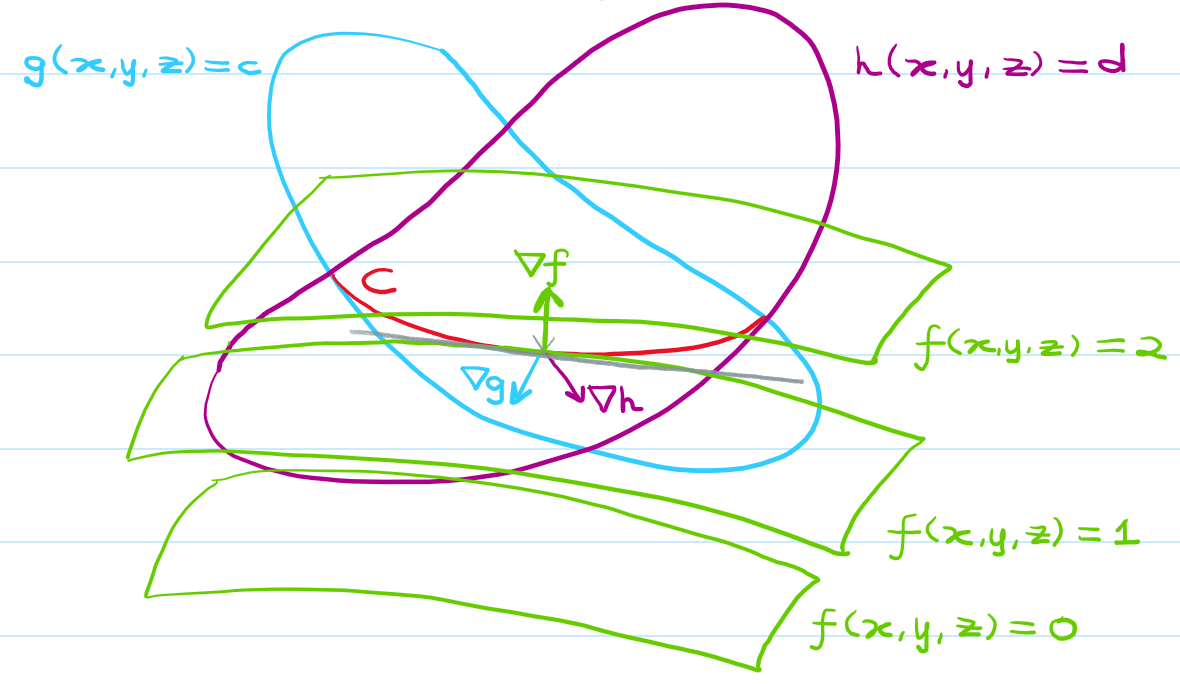 g(x,y,z)=c
h(x,y,z)=d
∇f
C
f(x,y,z)=2
∇g
∇h
f(x,y,z)=1
f(x,y,z)=0